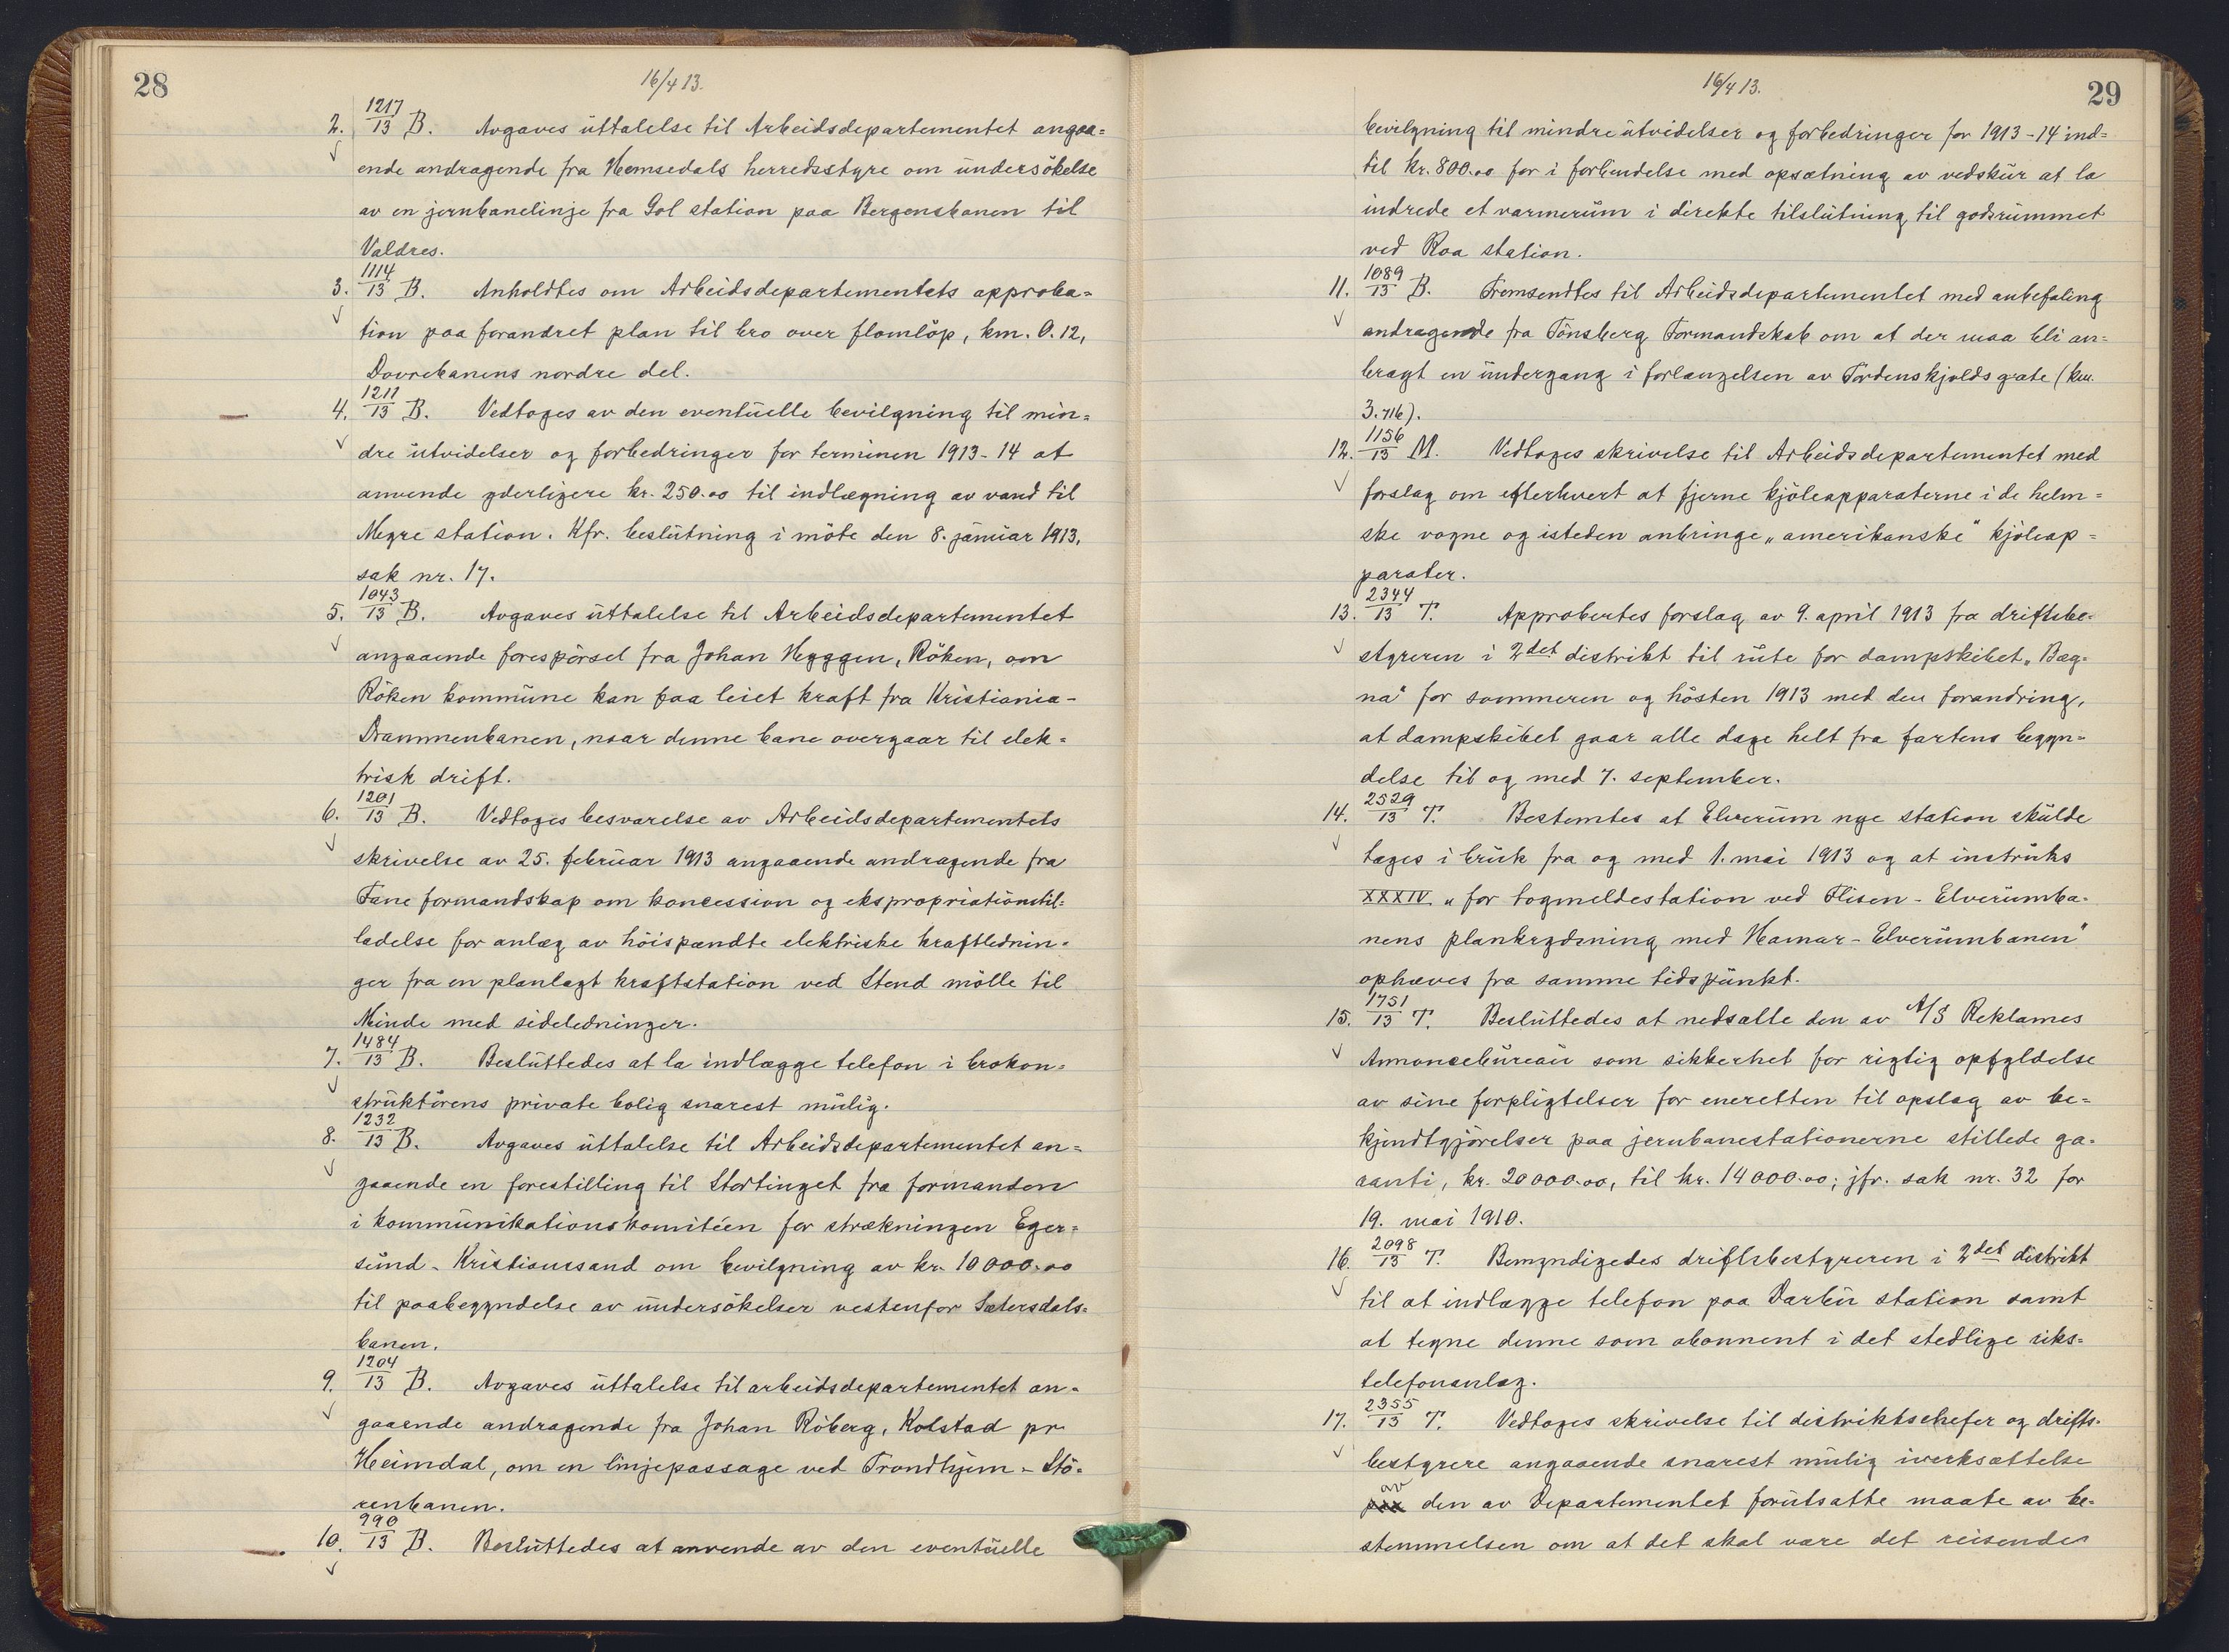 28
16/4 13.
2. 1217/13 B. Avgaves uttalelse til Arbeidsdepartementet angaa=
ende andragende fra Hemsedals herredsstyre om undersökelse
av en jernbanelinje fra Gol station paa Bergensbanen til
Valdres.
3. 1114/13 B. Anholdtes om Arbeidsdepartementets approba=
tion paa forandret plan til bro over flomlöp, km. 0.12,
Dovrebanens nordre del.
4. 1211/13 B. Vedtoges av den eventuelle bevilgning til min=
dre utvidelser og forbedringer for terminen 1913-14 at
anvende yderligere kr. 250.00 til indlægning av vand til
Megre station. Kfr. beslutning i möte den 8. januar 1913,
sak nr. 17.
5. 1043/13 B. Avgaves uttalelse til Arbeidsdepartementet
angaaende forespörsel fra Johan Heggen, Röken, om
Röken kommune kan faa leiet kraft fra Kristiania-
Drammenbanen, naar denne bane overgaar til elek=
trisk drift.
6. 1201/13 B. Vedtoges besvarelse av Arbeidsdepartementets
skrivelse av 25. februar 1913 angaaende andragende fra
Fane formandskap om koncession og ekspropriationstil=
ladelse for anlæg av höispændte elektriske kraftlednin=
ger fra en planlagt kraftstation ved Stend mölle til
Minde med sideledninger.
7. 1484/13 B. Besluttedes at la indlægge telefon i brokon=
struktörens private bolig snarest mulig.
8. 1232/13 B. Avgaves uttalelse til Arbeidsdepartementet an=
gaaende en forestilling til Stortinget fra formanden
i kommunikationskomitéen for strækningen Eger=
sund - Kristianssand om bevilgning av kr. 10 000.00
til paabegyndelse av undersökelser vestenfor Sætersdals=
banen.
9. 1204/13 B. Avgaves uttalelse til arbeidsdepartementet an=
gaaende andragende fra Johan Röberg, Kolstad pr
Heimdal, om en linjepassage ved Trondhjem - Stö=
renbanen.
10. 990/13 B. Besluttedes at anvende av den eventuelle
29
16/4 13.
bevilgning til mindre utvidelser og forbedringer for 1913-14 ind=
til kr. 800.00 for i forbindelse med opsætning av vedskur at la
indrede et varmerum i direkte tilslutning til godsrummet
ved Roa station.
11. 1089/13 B. Fremsendtes til Arbeidsdepartementet med anbefaling
andragende fra Tönsberg Formandskab om at der maa bli an=
bragt en undergang i forlængelsen av Tordenskjolds gate (km.
3.716).
12. 1156/13 M. Vedtoges skrivelse til Arbeidsdepartementet med
forslag om efterhvert at fjerne kjöleapparaterne i de helm=
ske vogne og isteden anbringe „amerikanske" kjöleap=
parater.
13. 2344/13 T. Approbertes forslag av 9. april 1913 fra driftsbe=
styreren i 2det distrikt til rute for dampskibet „Bæg=
na" for sommeren og hösten 1913 med den forandring,
at dampskibet gaar alle dage helt fra fartens begyn=
delse til og med 7. september.
14. 2529/13 T. Bestemtes at Elverum nye station skulde
tages i bruk fra og med 1. mai 1913 og at instruks
XXXIV „for togmeldestation ved Flisen - Elverumba=
nens plankrydsning med Hamar - Elverumbanen"
ophæves fra samme tidspunkt.
15. 1751/13 T. Besluttedes at nedsætte den av A/S Reklames
Annoncebureau som sikkerhet for rigtig opfyldelse
av sine forpligtelser for eneretten til opslag av be=
kjendtgjörelser paa jernbanestationerne stillede ga=
ranti, kr. 20 000.00, til kr. 14 000.00; jfr. sak nr. 32 for
19. mai 1910.
16. 2098/13 T. Bemyndigedes driftsbestyreren i 2det distrikt
til at indlægge telefon paa Darbu station samt
at tegne denne som abonnent i det stedlige riks=
telefonanlæg.
17. 2355/13 T. Vedtoges skrivelse til distriktschefer og drifts=
bestyrere angaaende snarest mulig iverksættelse
av den av Departementet forutsatte maate av be=
stemmelsen om at det skal være det reisende